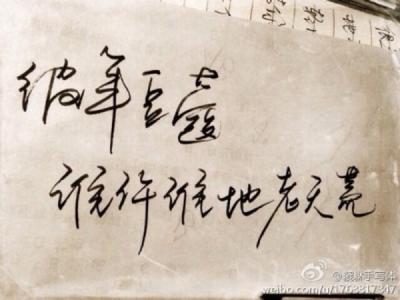 彼年豆蔻
谁许谁地老天荒
手写体
weibo.com/u/1763817347